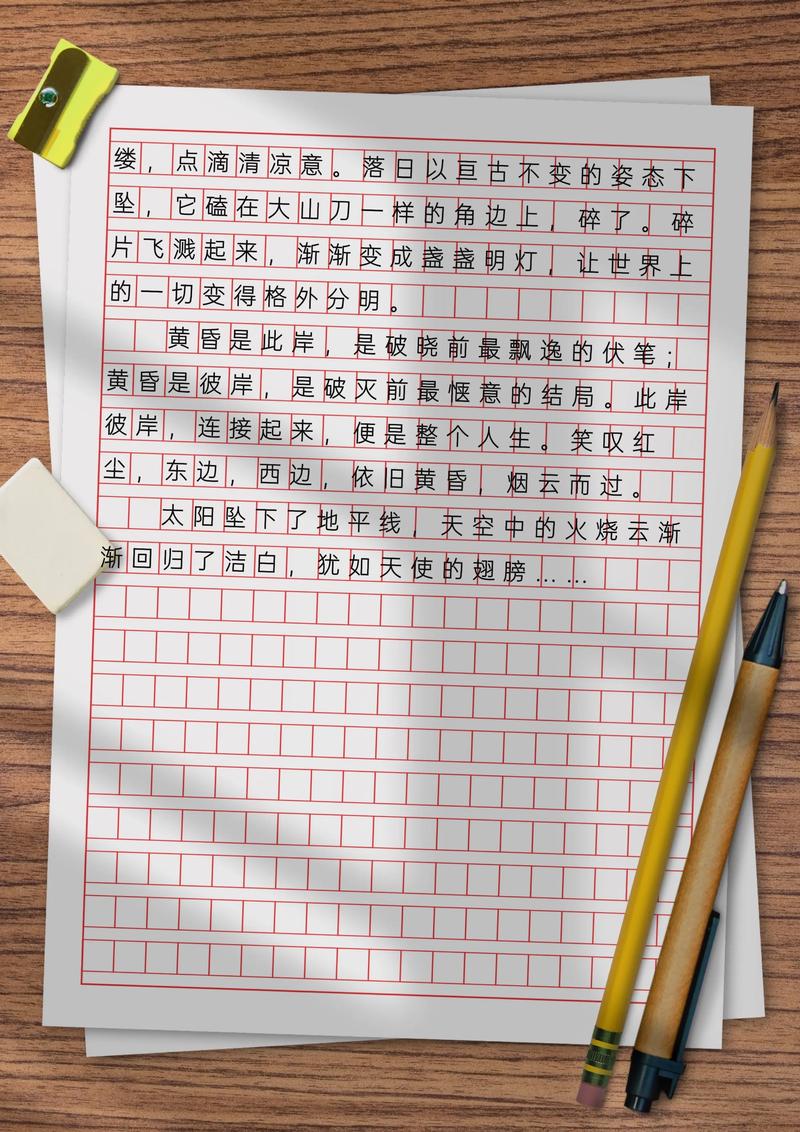 缕，点滴清凉意。落日以亘古不变的姿态下
坠，它磕在大山刀一样的角边上，碎了。碎
片飞溅起来，渐渐变成盏盏明灯，让世界上
的一切变得格外分明。
黄昏是此岸，是破晓前最飘逸的伏笔；
黄昏是彼岸，是破灭前最惬意的结局。此岸
彼岸，连接起来，便是整个人生。笑叹红
尘，东边，西边，依旧黄昏，烟云而过。
太阳坠下了地平线，天空中的火烧云渐
渐回归了洁白，犹如天使的翅膀……